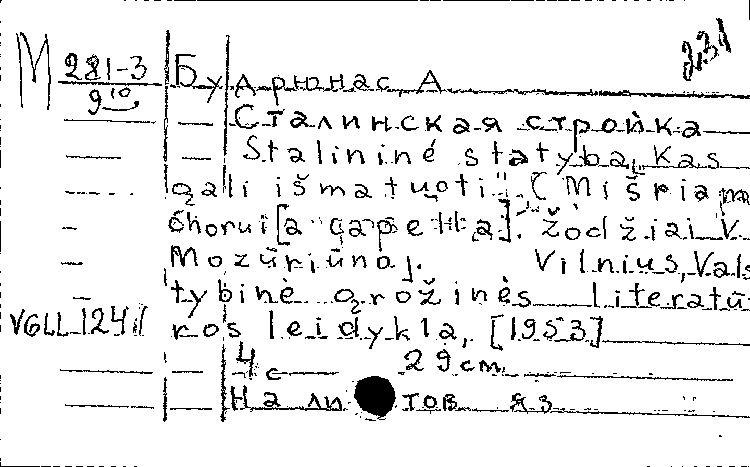 М 281-3 Будрюнас, А 2,31
9 10
Сталинская стройка
Stalininė statyba, "Kas
gali išmatuoti". (Mišriam
chorui [a capella]. Žodžiai V.
Mozūriūno). Vilnius, Vals
tybinė grožinės literatū
VGLL 124 ros leidykla, [1953]
4 с 29 cm
На ли тов яз